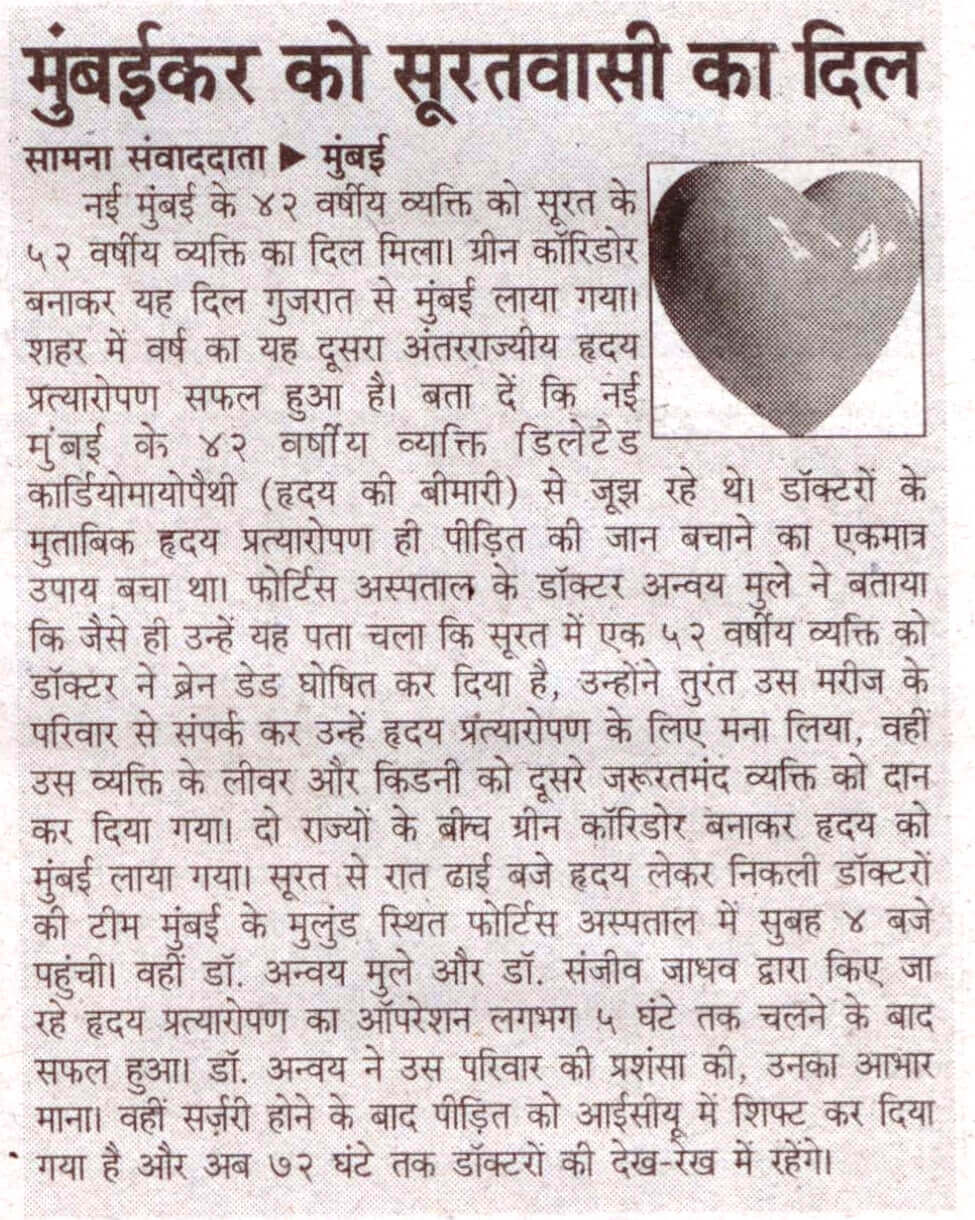 मुंबईकर को सूरतवासी का दिल
सामना संवाददाता ▶ मुंबई
नई मुंबई के ४२ वर्षीय व्यक्ति को सूरत के
५२ वर्षीय व्यक्ति का दिल मिला। ग्रीन कॉरिडोर
बनाकर यह दिल गुजरात से मुंबई लाया गया।
शहर में वर्ष का यह दूसरा अंतरराज्यीय हृदय
प्रत्यारोपण सफल हुआ है। बता दें कि नई
मुंबई के ४२ वर्षीय व्यक्ति डिलेटेड
कार्डियोमायोपैथी (हृदय की बीमारी) से जूझ रहे थे। डॉक्टरों के
मुताबिक हृदय प्रत्यारोपण ही पीड़ित की जान बचाने का एकमात्र
उपाय बचा था। फोर्टिस अस्पताल के डॉक्टर अन्वय मुले ने बताया
कि जैसे ही उन्हें यह पता चला कि सूरत में एक ५२ वर्षीय व्यक्ति को
डॉक्टर ने ब्रेन डेड घोषित कर दिया है, उन्होंने तुरंत उस मरीज के
परिवार से संपर्क कर उन्हें हृदय प्रत्यारोपण के लिए मना लिया, वहीं
उस व्यक्ति के लीवर और किडनी को दूसरे जरूरतमंद व्यक्ति को दान
कर दिया गया। दो राज्यों के बीच ग्रीन कॉरिडोर बनाकर हृदय को
मुंबई लाया गया। सूरत से रात ढाई बजे हृदय लेकर निकली डॉक्टरों
की टीम मुंबई के मुलुंड स्थित फोर्टिस अस्पताल में सुबह ४ बजे
पहुंची। वहीं डॉ. अन्वय मुले और डॉ. संजीव जाधव द्वारा किए जा
रहे हृदय प्रत्यारोपण का ऑपरेशन लगभग ५ घंटे तक चलने के बाद
सफल हुआ। डॉ. अन्वय ने उस परिवार की प्रशंसा की, उनका आभार
माना। वहीं सर्ज़री होने के बाद पीड़ित को आईसीयू में शिफ्ट कर दिया
गया है और अब ७२ घंटे तक डॉक्टरों की देख-रेख में रहेंगे।